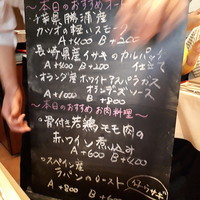 ～本日のおすすめオー
千葉県勝浦産
カツオの軽いスモーク
A+400 B+200
長崎県産イサキのカルパッチョ
仕立て
A+200
オランダ産ホワイトアスパラガス
オランデーズソース
A+600 B+800
～本日のおすすめお肉料理～
骨付き若鶏モモ肉の
赤ワイン煮込み
A+600 B+4
スペイン産
ラパンのロースト
A+800 B+6
ウサギ